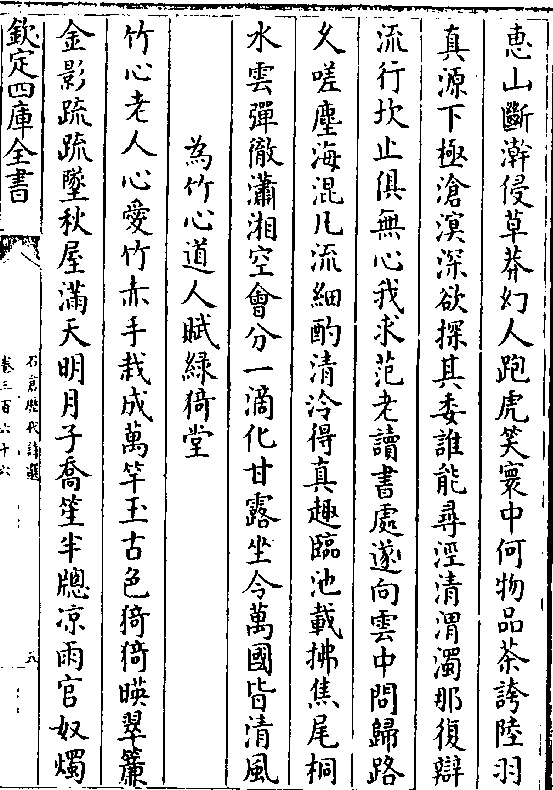 惠山斷澣侵草莽幻人跑虎笑寰中何物品茶誇陸羽
真源下極滄溟深欲探其委誰能尋涇清渭濁那復辯
流行坎止俱無心我求范老讀書處遂向雲中問歸路
久嗟塵海混凡流細酌清泠得真趣臨池載拂焦尾桐
水雲彈徹瀟湘空會分一滴化甘露坐令萬國皆清風
為竹心道人賦綠猗堂
竹心老人心愛竹赤手栽成萬竿玉古色猗猗暎翠簾
金影疏疏墜秋屋滿天明月子喬笙半牕凉雨官奴燭
欽定四庫全書
石倉歷代詩選
卷三百六十六
五